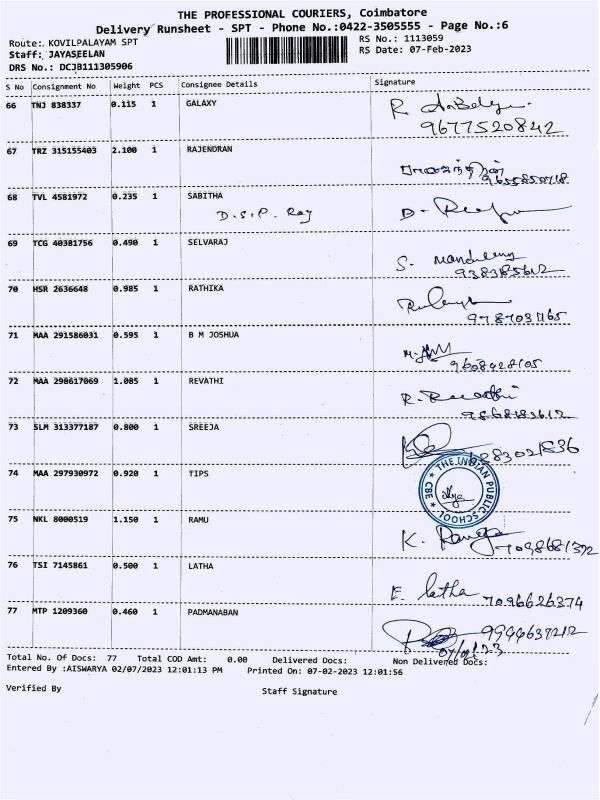 THE PROFESSIONAL COURIERS, Coimbatore
Delivery Runsheet - SPT - Phone No.:0422-3505555 - Page No.:6
Route: KOVILPALAYAM SPT
RS No.: 1113059
Staff: JAYASEELAN
RS Date: 07-Feb-2023
DRS No.: DCJB111305906
S No Consignment No Weight PCS Consignee Details Signature
66 TNJ 838337 0.115 1 GALAXY R
9677520842
67 TRZ 315155403 2.100 1 RAJENDRAN
68 TVL 4581972 0.235 1 SABITHA
D.S.P. Ray D.
69 TCG 40381756 0.490 1 SELVARAJ
S.
70 HSR 2636648 0.985 1 RATHIKA
71 MAA 291586031 0.595 1 B M JOSHUA
72 MAA 298617069 1.085 1 REVATHI
R.
73 SLM 313377187 0.800 1 SREEJA
74 MAA 297930972 0.920 1 TIPS
THE INDIAN PUBLIC SCHOOL CBE
75 NKL 8000519 1.150 1 RAMU
K.
76 TSI 7145861 0.500 1 LATHA
E. latha 7096626374
77 MTP 1209360 0.460 1 PADMANABAN
9944637212
Total No. Of Docs: 77 Total COD Amt: 0.00 Delivered Docs: Non Delivered Docs:
Entered By :AISWARYA 02/07/2023 12:01:13 PM Printed On: 07-02-2023 12:01:56
Verified By Staff Signature